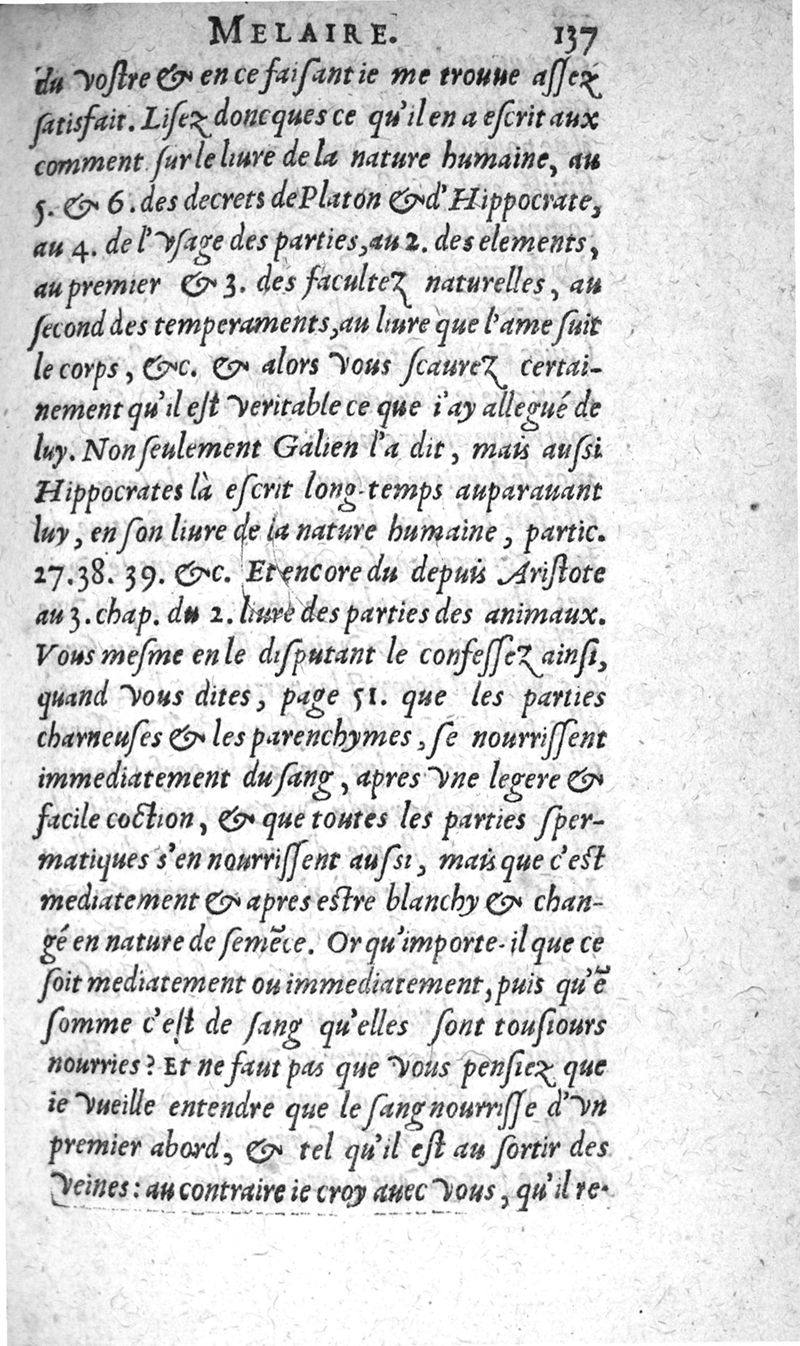 MELAIRE. 137
du vostre & en ce faisant ie me trouue assez
satisfait. Lisez doncques ce qu'il en a escrit aux
comment sur le liure de la nature humaine, au
5. & 6. des decrets de Platon & d'Hippocrate,
au 4. de l'vsage des parties, au 2. des elements,
au premier & 3. des facultez naturelles, au
second des temperaments, au liure que l'ame suit
le corps, &c. & alors vous scaurez certai-
nement qu'il est veritable ce que i'ay allegué de
luy. Non seulement Galien l'a dit, mais aussi
Hippocrates là escrit long-temps auparauant
luy, en son liure de la nature humaine, partic.
27. 38. 39. &c. Et encore du depuis Aristote
au 3. chap. du 2. liure des parties des animaux.
Vous mesme en le disputant le confessez ainsi,
quand vous dites, page 51. que les parties
charneuses & les parenchymes, se nourrissent
immediatement du sang, apres vne legere &
facile coction, & que toutes les parties sper-
matiques s'en nourrissent aussi, mais que c'est
mediatement & apres estre blanchy & chan-
gé en nature de semẽce. Or qu'importe-il que ce
soit mediatement ou immediatement, puis qu'ẽ
somme c'est de sang qu'elles sont tousiours
nourries? Et ne faut pas que vous pensiez que
ie vueille entendre que le sang nourrisse d'vn
premier abord, & tel qu'il est au sortir des
veines: au contraire ie croy auec vous, qu'il re-